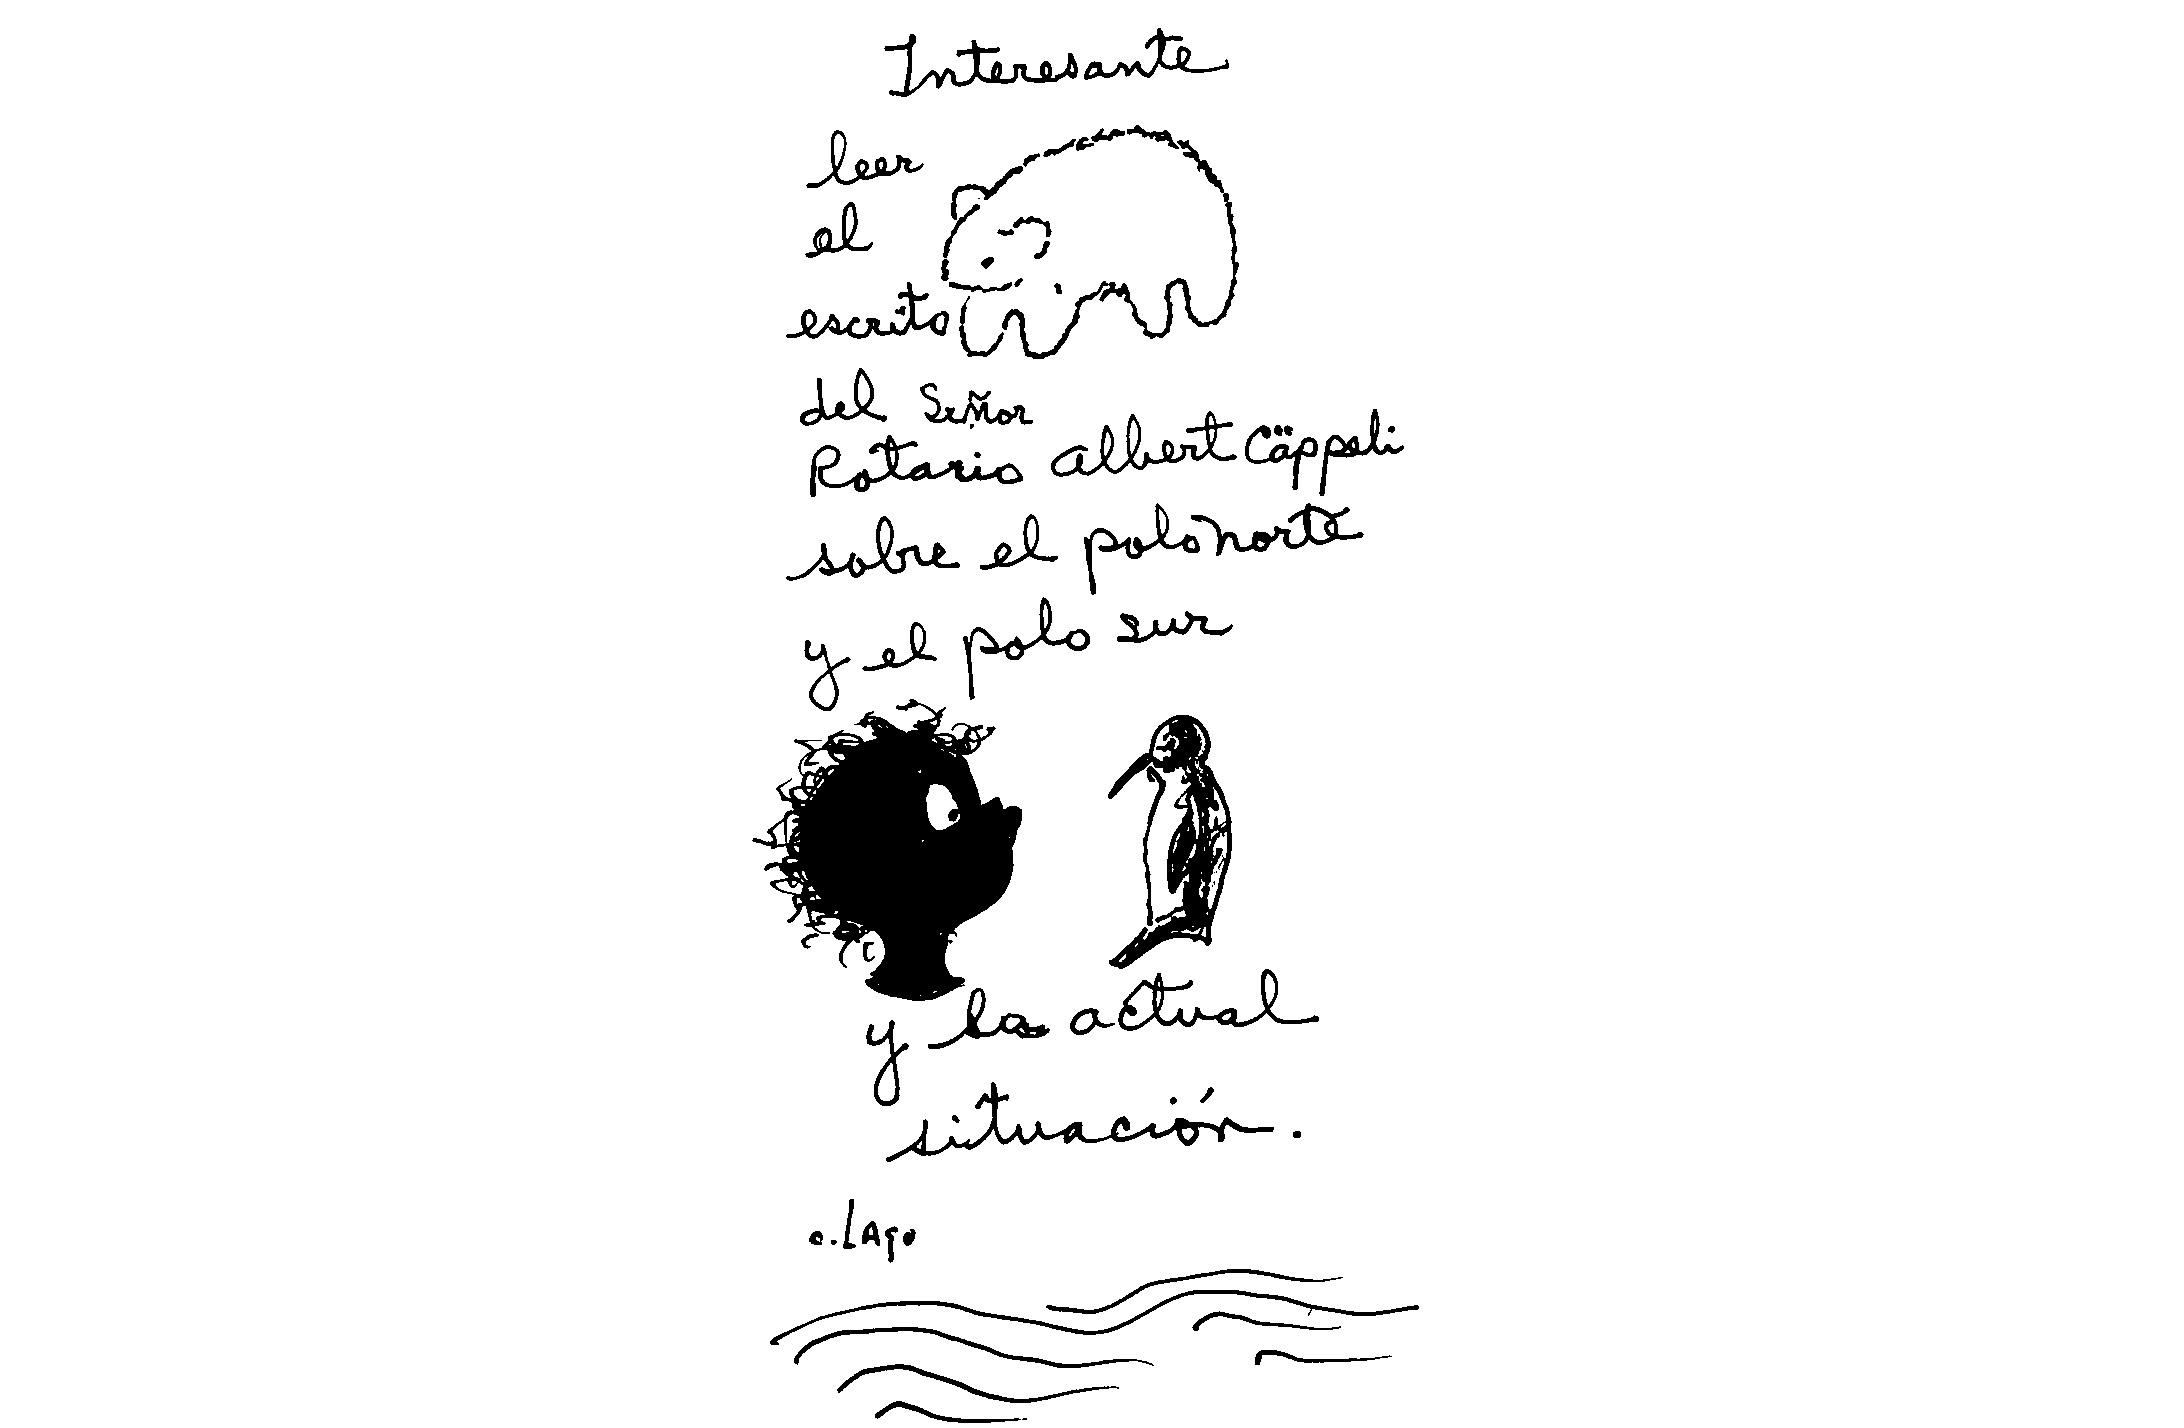 Interesante
leer
el
escrito
del Señor
Rotario Albert Cäppeli
sobre el polo norte
y el polo sur
y la actual
situación.
c. LAgo